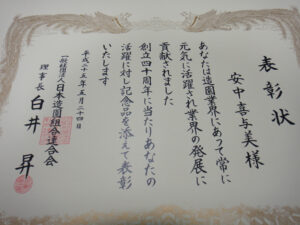 表彰状
安中喜与美様
あなたは造園業界にあって常に
元気に活躍され業界の発展に
貢献されました
創立四十周年に当たりあなたの
活躍に対し記念品を添えて表彰
いたします
平成二十五年五月二十四日
一般社団法人日本造園組合連合会
理事長 白井 昇